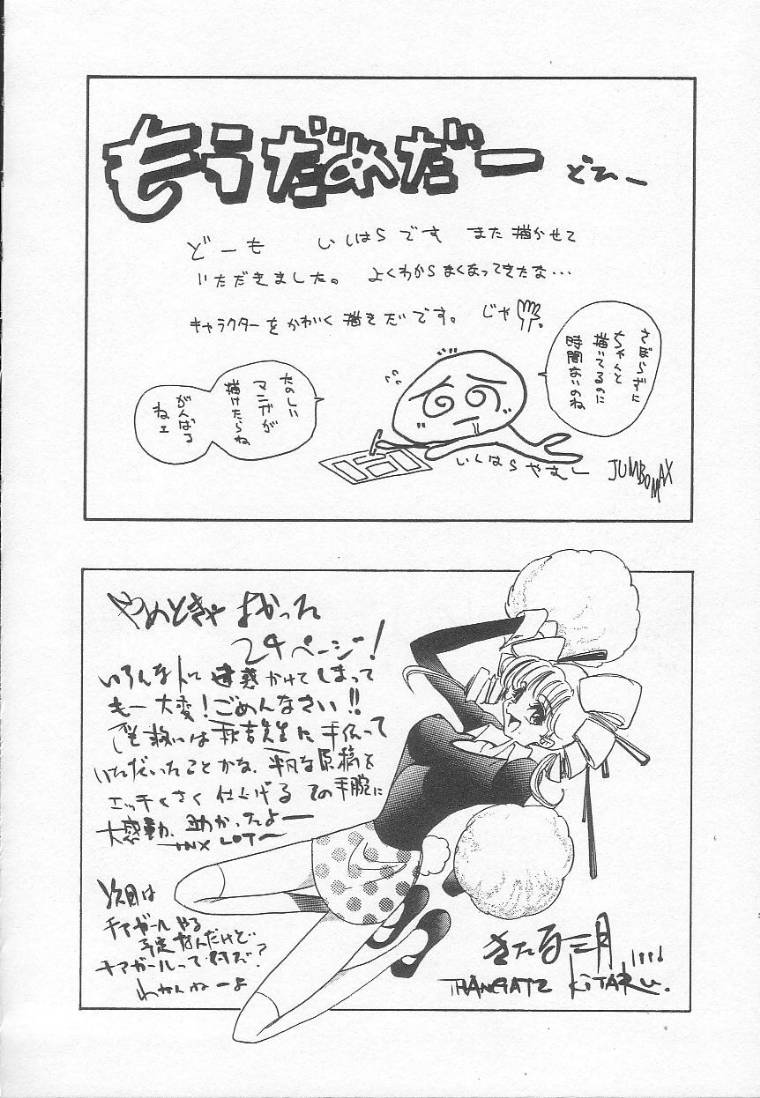 もうだめだー どひー
どーも いしはらです また描かせて
いただきました。 よくわからなくなってきたな…
キャラクターをかわいく描きたいです。 じゃ
さぼらずに
ちゃんと
描いてるのに
時間ないのね
たのしい
マンガが
描けたらね
がんばる
ねェ
いしはらやすしー
JUMBOMAX
やめときゃよかった
24ページ!
いろんな人に迷惑かけてしまって
もー大変!ごめんなさい!!
でも救いは 手伝って
いただいたことかな、平凡な原稿を
エッチくさく仕上げるその手腕に
大感動、助かったよー
TNX LOTー
次回は
チアガールやる
予定なんだけど…
チアガールって何だ?
わかんねーよ
きたる三月
KITARU.